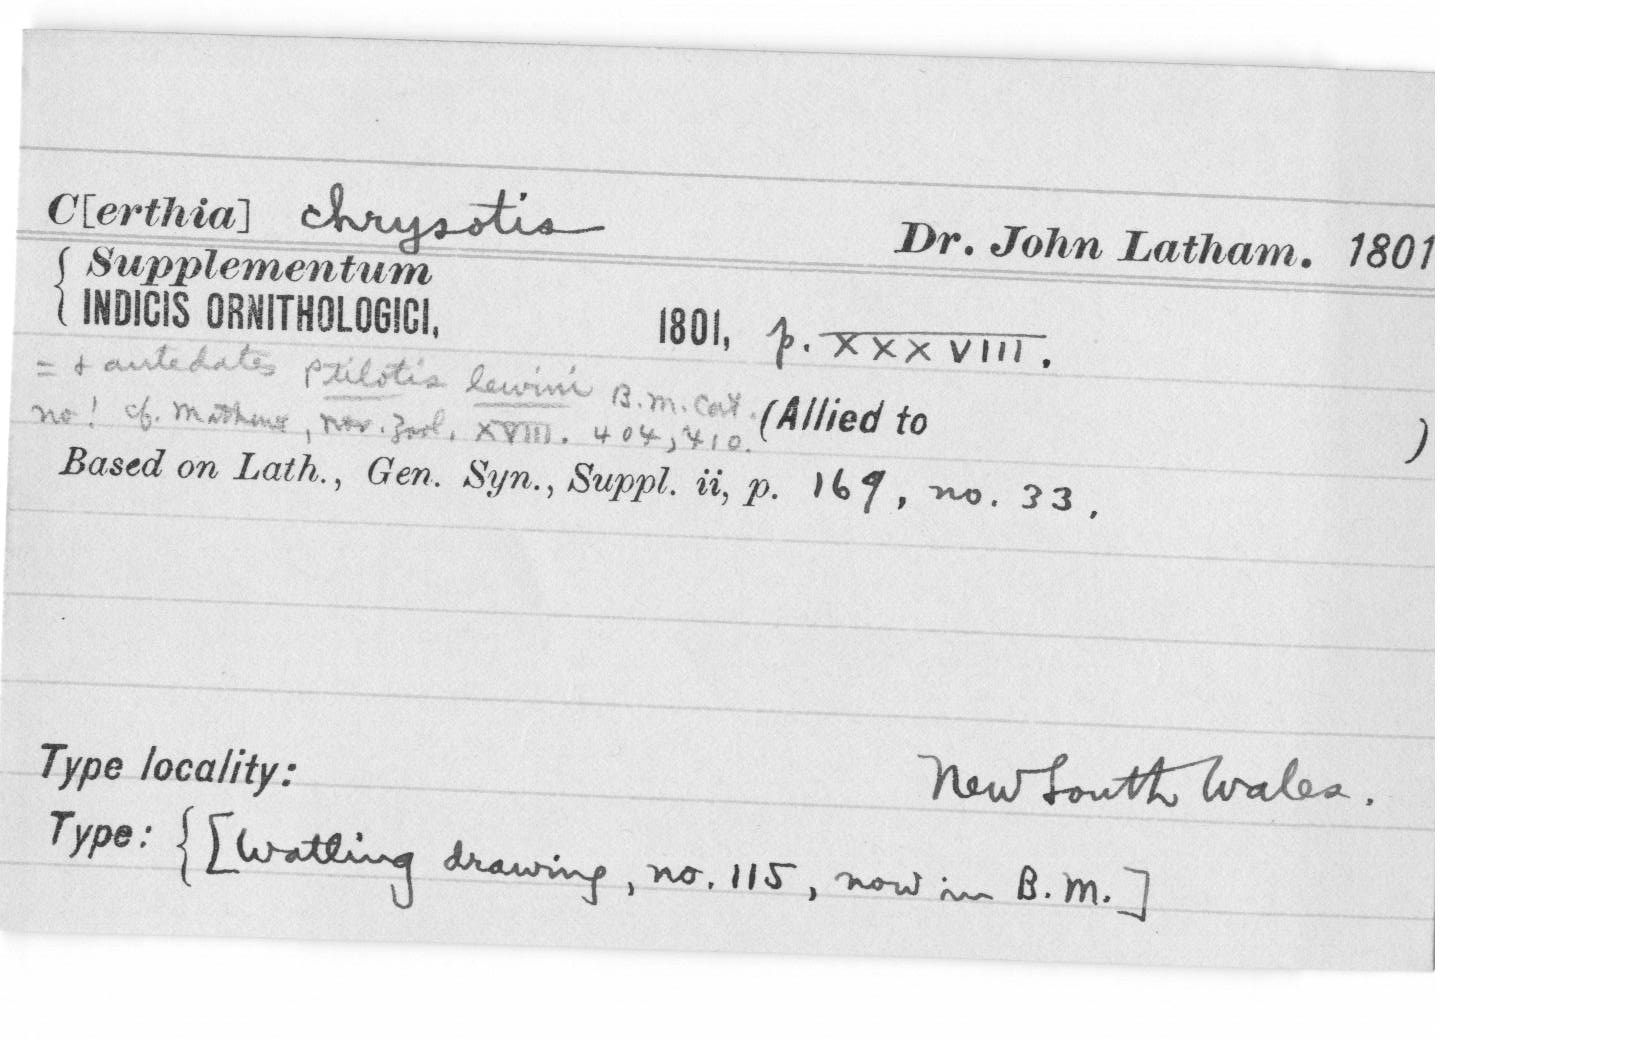 C[erthia] chrysotis Dr. John Latham. 1801
{ Supplementum
INDICIS ORNITHOLOGICI, 1801, p. XXXVIII.
= + antedates Ptilotis lewini B.M. Cat.
no! cf. Mathews, Nov. Zool. XVIII. 404, 410. (Allied to )
Based on Lath., Gen. Syn., Suppl. ii, p. 169, no. 33.
Type locality: New South Wales.
Type: { [Watling drawing, no. 115, now in B.M.]